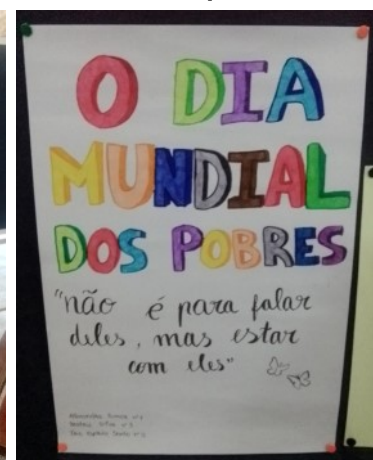 O DIA
MUNDIAL
DOS POBRES
"não é para falar
deles, mas estar
com eles"